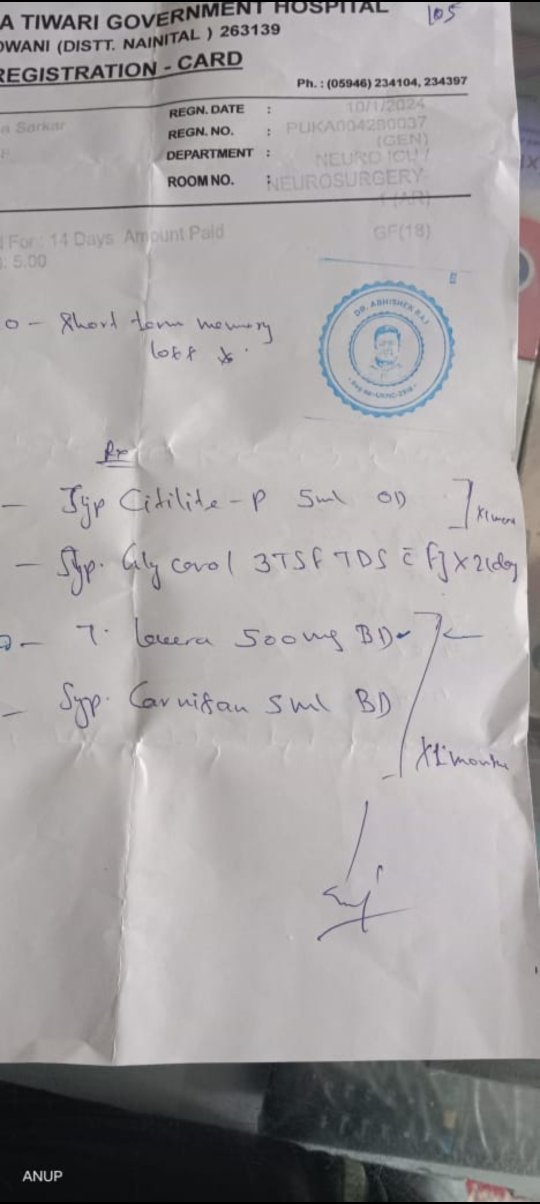 A TIWARI GOVERNMENT HOSPITAL
105
DWANI (DISTT. NAINITAL ) 263139
REGISTRATION - CARD
Ph. : (05946) 234104, 234397
REGN. DATE : 10/1/2024
a Sarkar
REGN. NO. : PUKA004290037
F
(GEN)
DEPARTMENT : NEURO ICU /
ROOM NO. : NEUROSURGERY-
1 (AR)
d For : 14 Days Amount Paid GF(18)
: 5.00
DR. ABHISHEK RAJ
o - Short term memory
loss
Rx
- Syp Citilite-P 5ml OD
- Syp. Glycerol 3TSF TDS c̄ fj X 2 day
- T. Levera 500mg BD
- Syp. Carnisan 5ml BD
X 1 month
ANUP